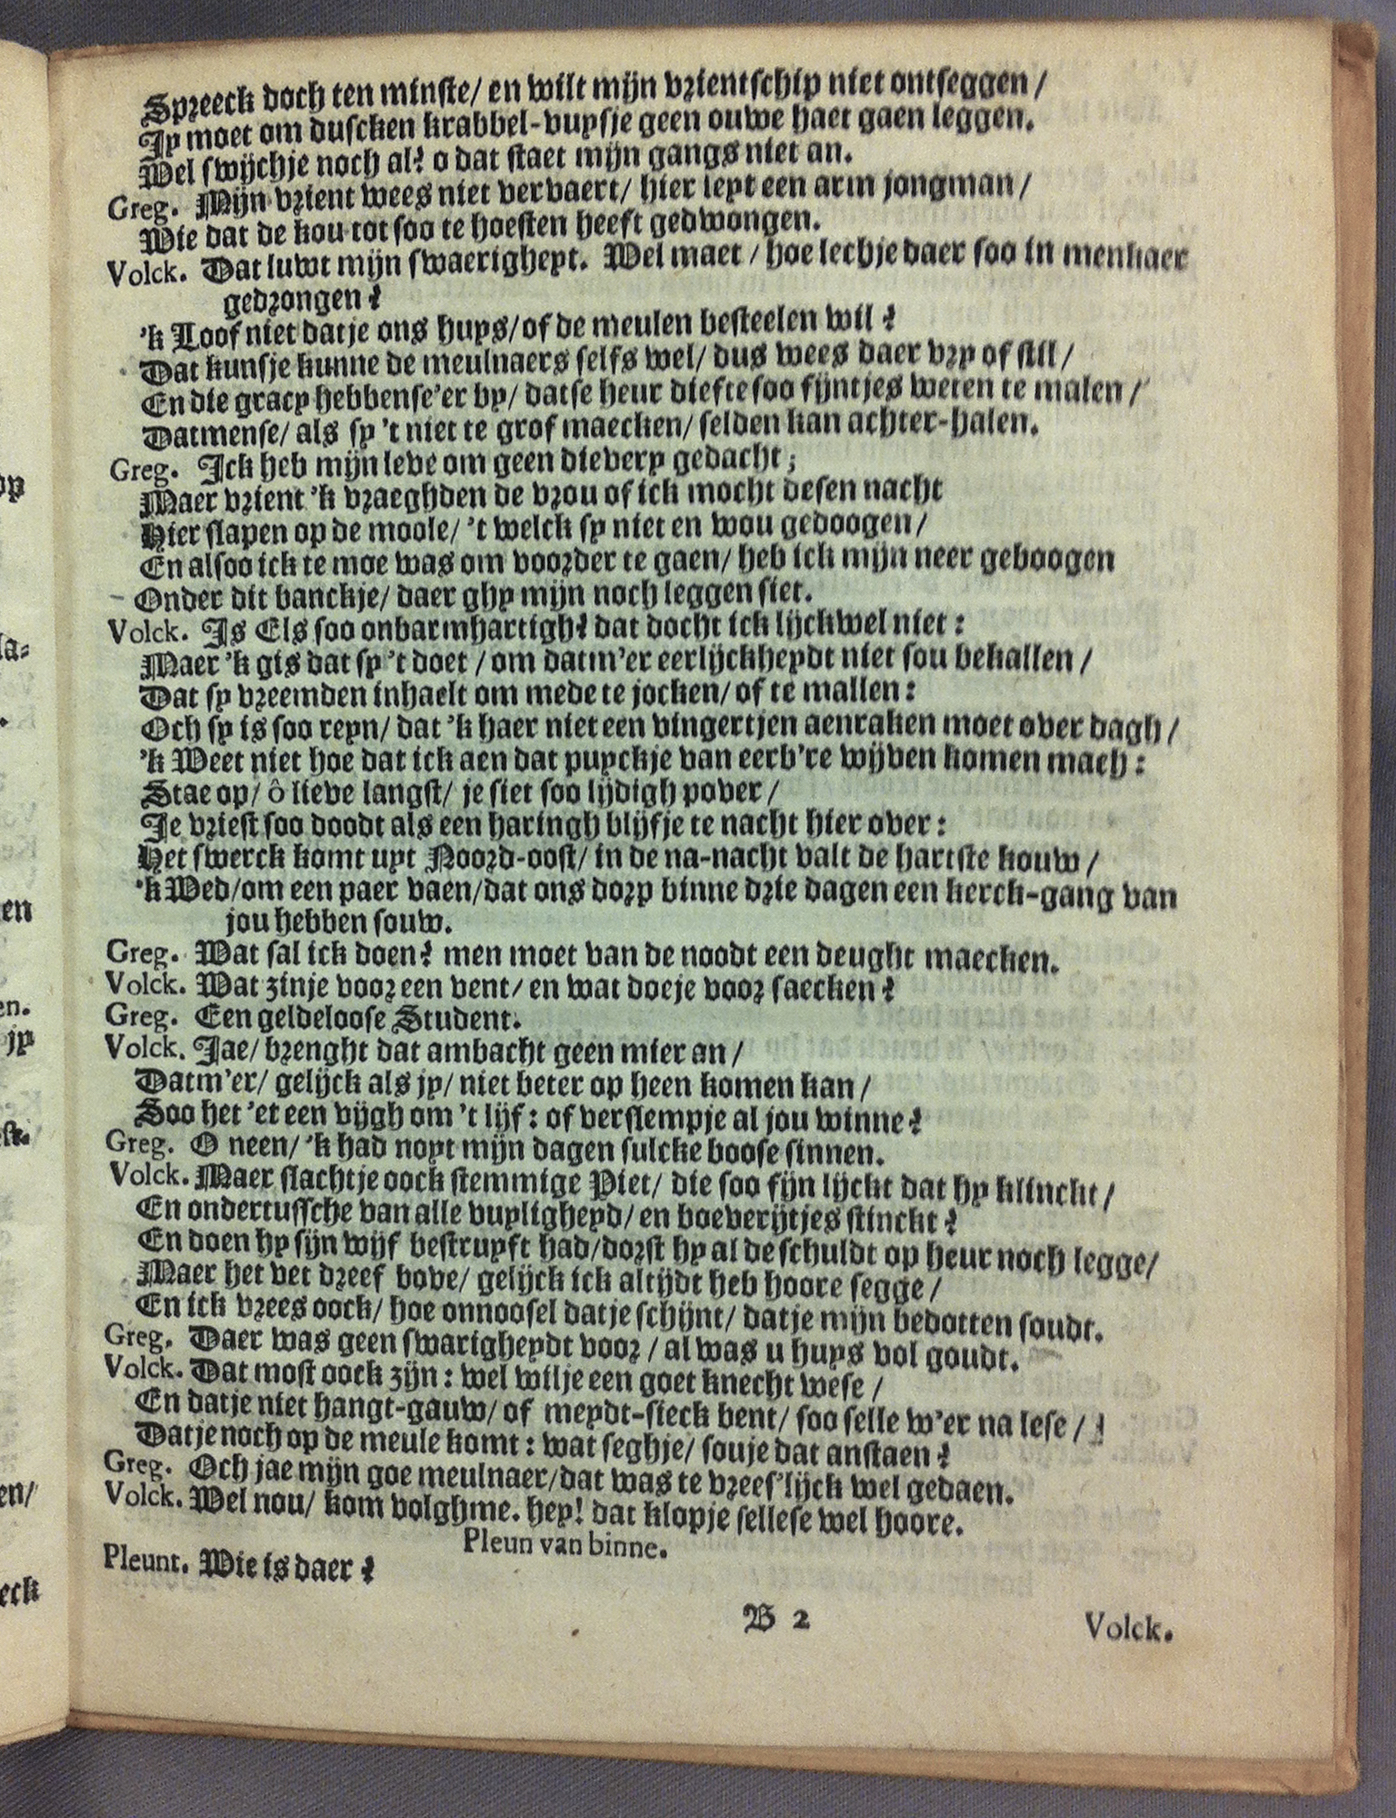 Spreeck doch ten minste/ en wilt mijn vrientschip niet ontseggen/
Jy moet om duscken krabbel-vuysje geen ouwe haet gaen leggen.
Wel swijchje noch al? o dat staet mijn gangs niet an.
Greg. Mijn vrient wees niet vervaert/ hier leyt een arm jongman/
Wie dat de kou tot soo te hoesten heeft gedwongen.
Volck. Dat luwt mijn swaerigheyt. Wel maet/ hoe lechje daer soo in menkaer
gedrongen?
'k Loof niet datje ons huys/of de meulen besteelen wil?
Dat kunsje kunne de meulnaers selfs wel/ dus wees daer vry of stil/
En die gracy hebbense'er by/ datse heur diefte soo fijntjes weten te malen/
Datmense/ als sy 't niet te grof maecken/ selden kan achter-halen.
Greg. Ick heb mijn leve om geen dievery gedacht;
Maer vrient 'k vraeghden de vrou of ick mocht desen nacht
Hier slapen op de moole/ 't welck sy niet en wou gedoogen/
En alsoo ick te moe was om voorder te gaen/ heb ick mijn neer geboogen
Onder dit banckje/ daer ghy mijn noch leggen siet.
Volck. Is Els soo onbarmhartigh? dat docht ick lijckwel niet:
Maer 'k gis dat sy 't doet/ om datm'er eerlijckheydt niet sou bekallen/
Dat sy vreemden inhaelt om mede te jocken/ of te mallen:
Och sy is soo reyn/ dat 'k haer niet een vingertjen aenraken moet over dagh/
'k Weet niet hoe dat ick aen dat puyckje van eerb're wijven komen mach:
Stae op/ ô lieve langst/ je siet soo lijdigh pover/
Je vriest soo doodt als een haringh blijfje te nacht hier over:
Het swerck komt uyt Noord-oost/ in de na-nacht valt de hartste kouw/
'k Wed/om een paer vaen/dat ons dorp binne drie dagen een kerck-gang van
jou hebben souw.
Greg. Wat sal ick doen? men moet van de noodt een deught maecken.
Volck. Wat zinje voor een vent/ en wat doeje voor saecken?
Greg. Een geldeloose Student.
Volck. Jae/ brenght dat ambacht geen mier an/
Datm'er/ gelijck als jy/ niet beter op heen komen kan/
Soo het 'et een vijgh om 't lijf: of verslempje al jou winne?
Greg. O neen/ 'k had noyt mijn dagen sulcke boose sinnen.
Volck. Maer slachtje oock stemmige Piet/ die soo fijn lijckt dat hy klinckt/
En ondertussche van alle vuyligheyd/ en boeverijtjes stinckt?
En doen hy sijn wijf bestruyft had/dorst hy al de schuldt op heur noch legge/
Maer het vet dreef bove/ gelijck ick altijdt heb hoore segge/
En ick vrees oock/ hoe onnoosel datje schijnt/ datje mijn bedotten soudt.
Greg. Daer was geen swarigheydt voor/ al was u huys vol goudt.
Volck. Dat most oock zijn: wel wilje een goet knecht wese/
En datje niet hangt-gauw/ of meydt-sieck bent/ soo selle w'er na lese/
Datje noch op de meule komt: wat seghje/ souje dat anstaen?
Greg. Och jae mijn goe meulnaer/dat was te vrees'lijck wel gedaen.
Volck. Wel nou/ kom volghme. hey! dat klopje sellese wel hoore.
Pleun van binne.
Pleunt. Wie is daer?
B 2
Volck.